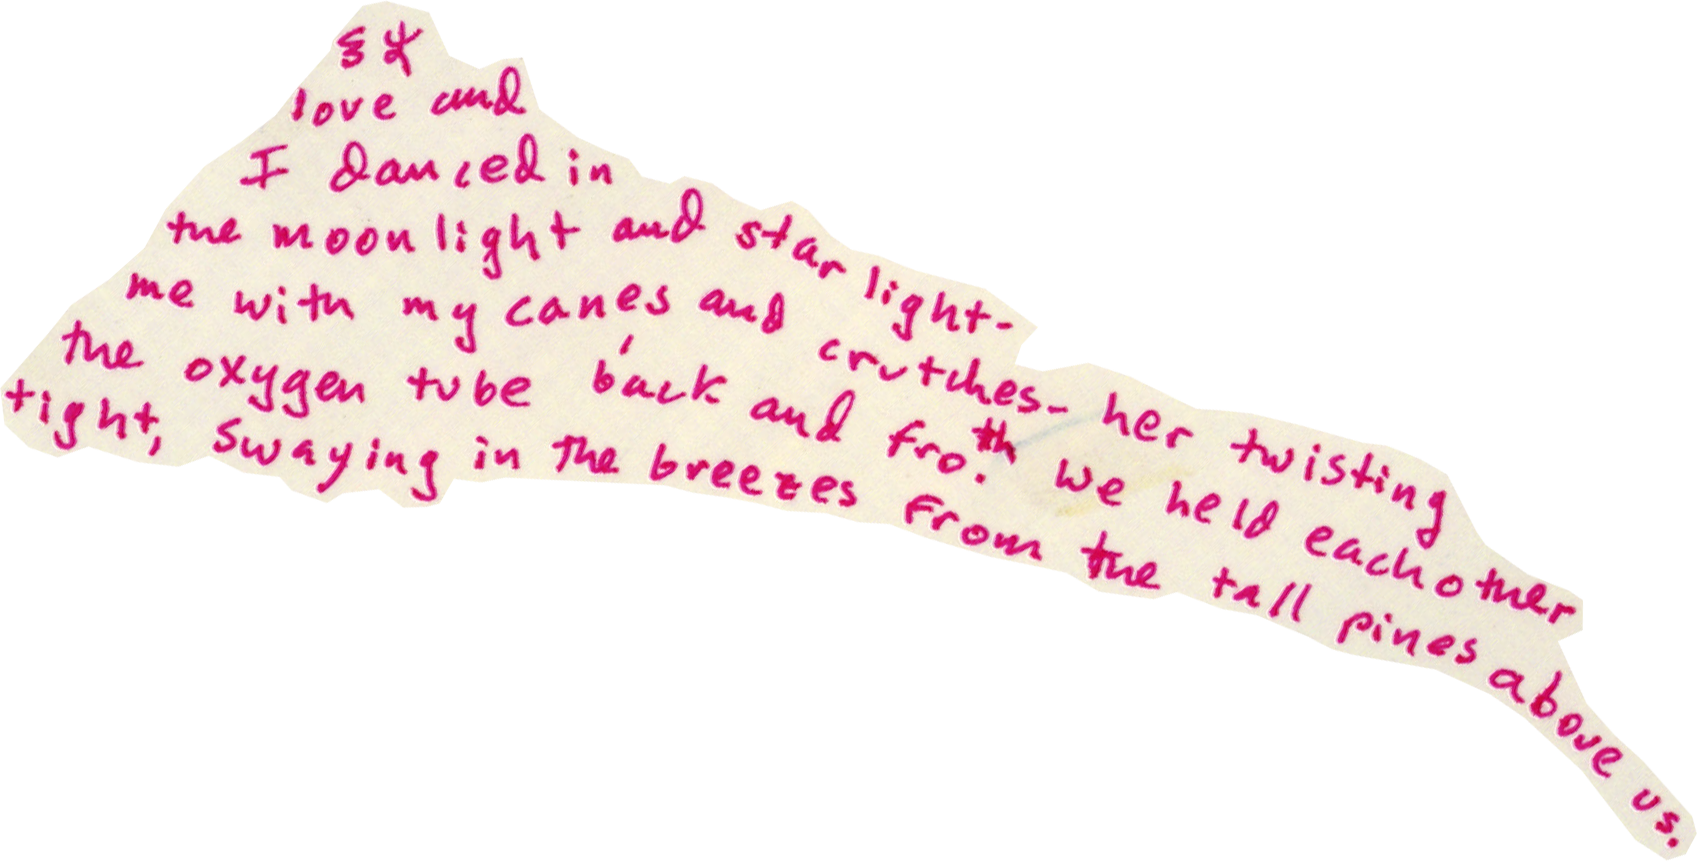 love and
I danced in
the moonlight and star light-
me with my canes and crutches- her twisting
the oxygen tube back and fro. we held each other
tight, swaying in the breezes from the tall pines above us.